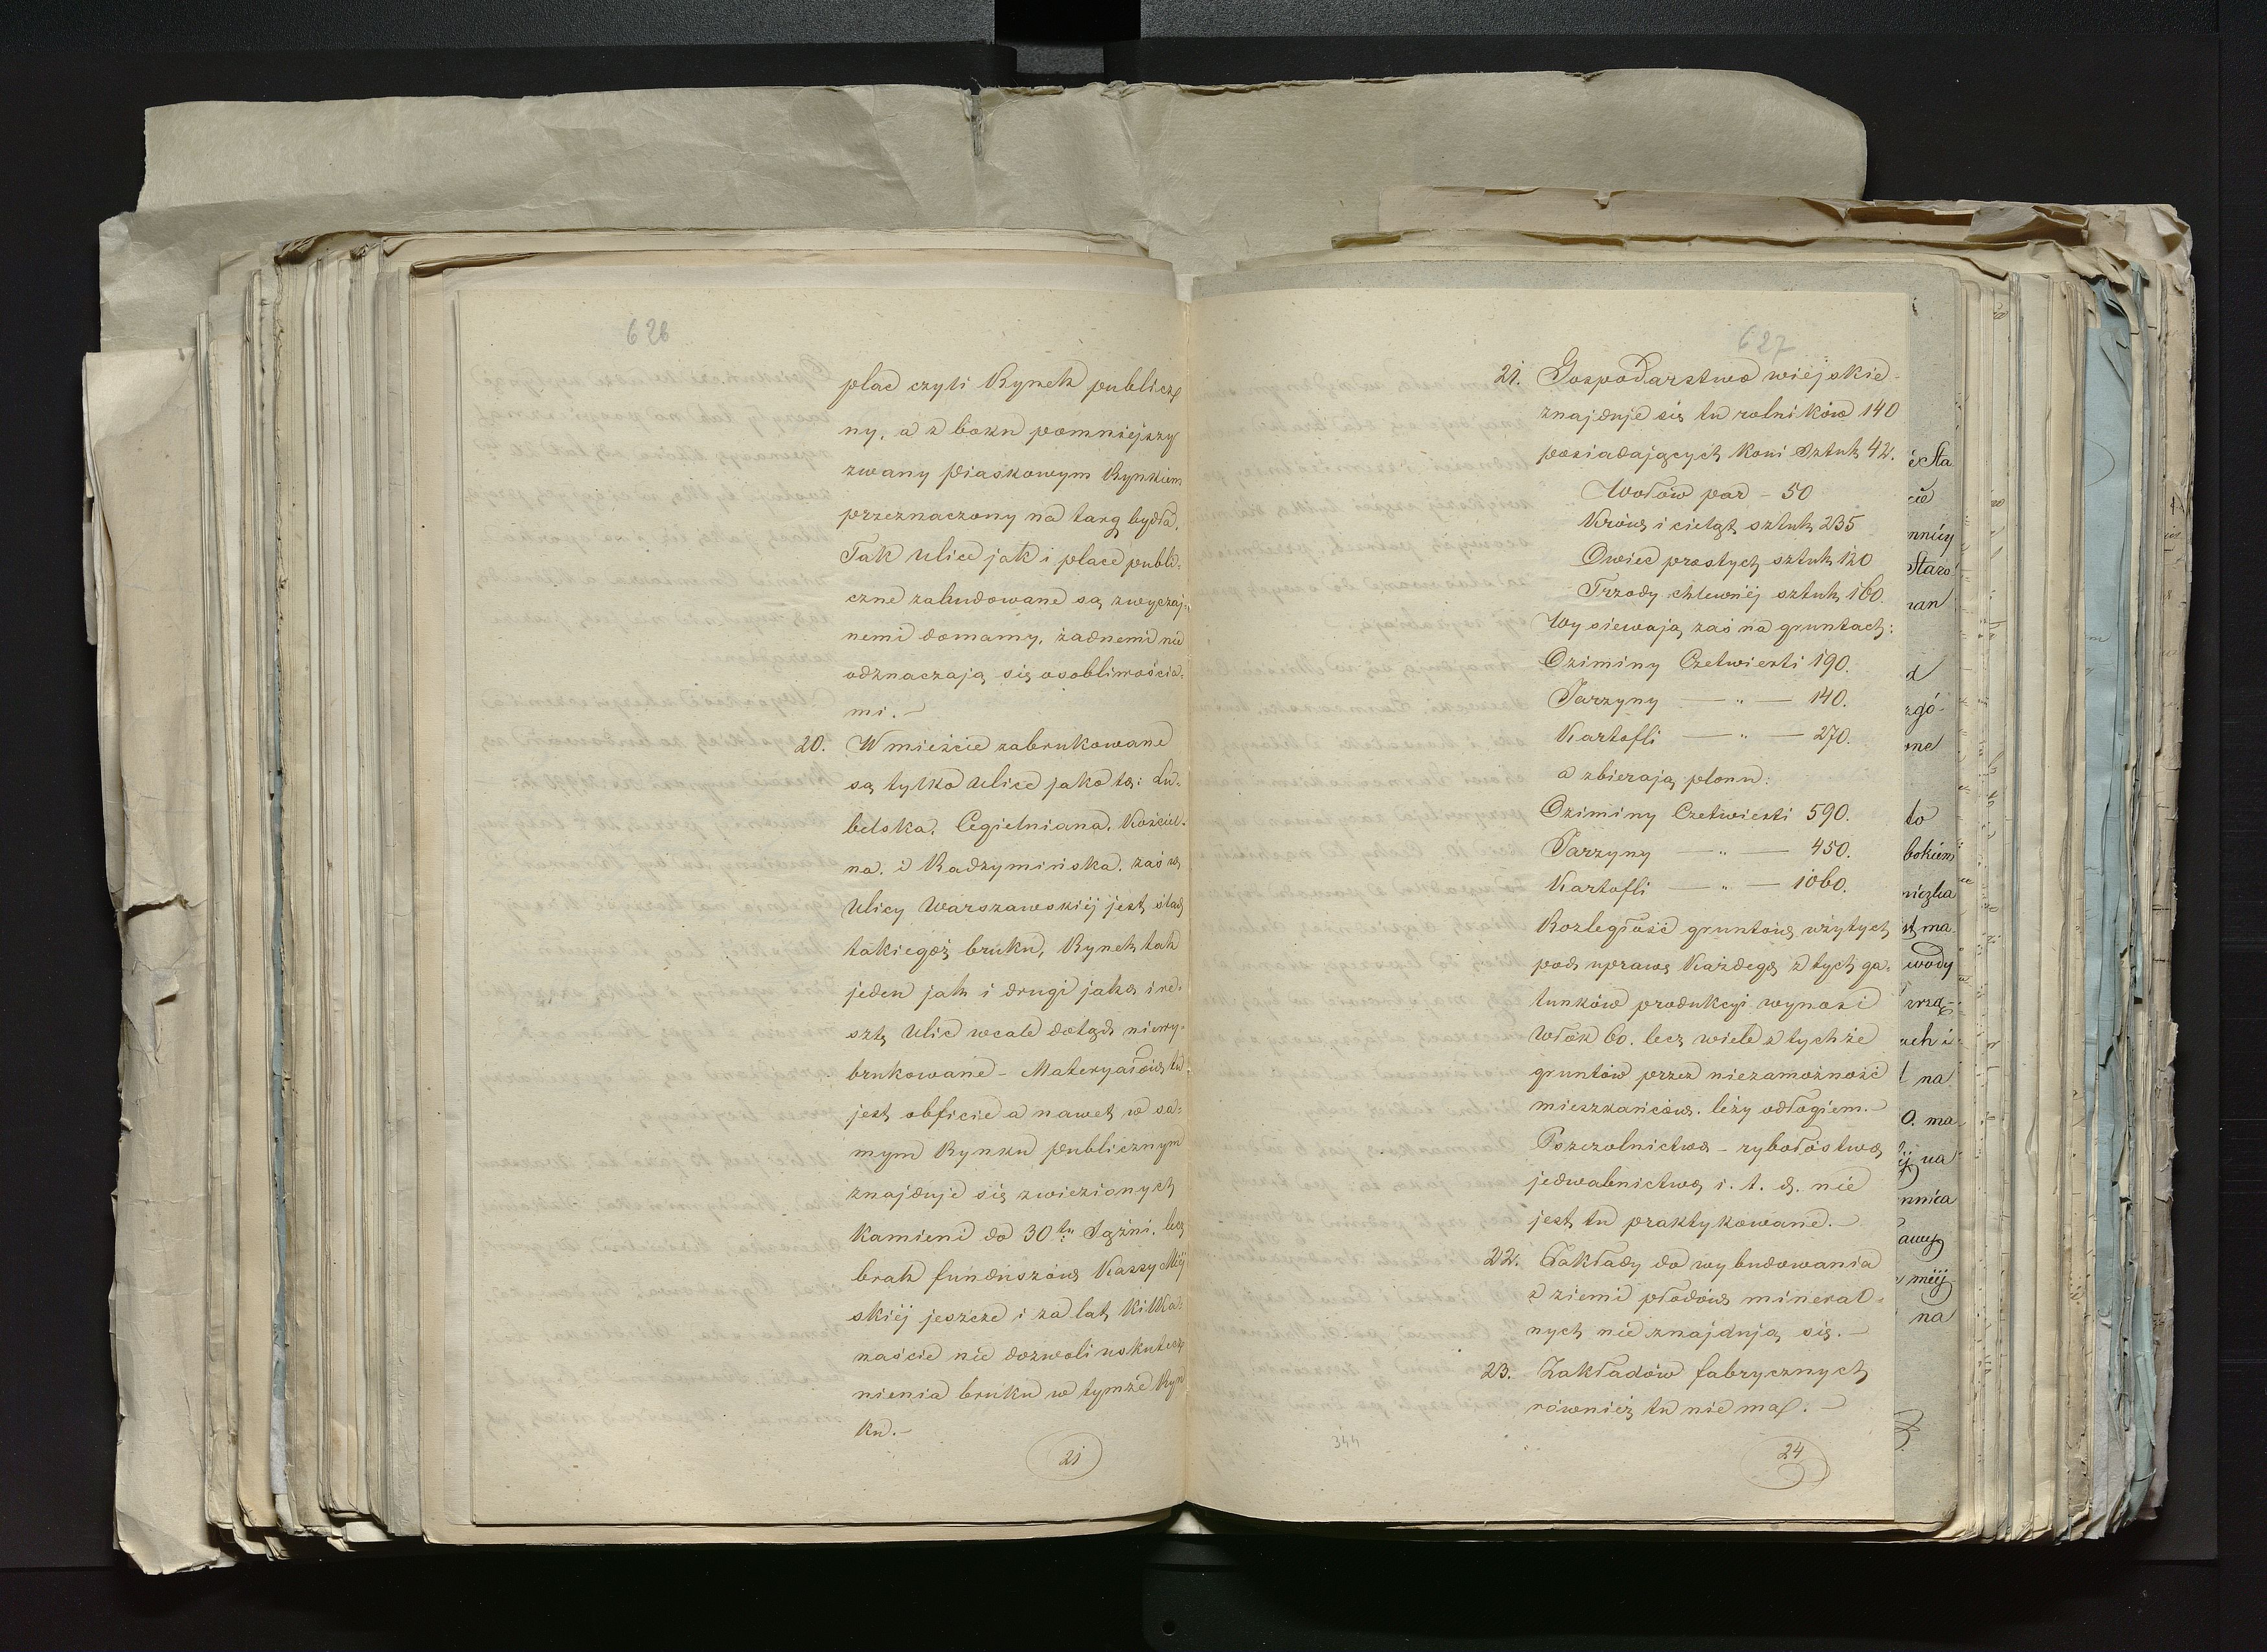 626
plac czyli Rynek publicz
ny, a z boku pomniejszy
zwany Piaskowym Rynkiem
przeznaczony na targ bydła.
Tak Ulice jak i place publi-
czne zabudowane są zwyczaj-
nemi domamy, żadnemi nie
odznaczają się osobliwościa-
mi.-
20. W mieście zabrukowane
są tylko Ulice jako to: Lu-
belska, Cegielniana, Kościel-
na, i Radzymińska, zaś w
Ulicy Warszawskiéj jest ślad
takiegoż bruku, Rynek tak
jeden jak i drugi jako i re-
szta Ulic wcale dotąd niewy-
brukowane - Materyałów tu
jest obficie a nawet w sa-
mym Rynku publicznym
znajduje się zwiezionych
Kamieni do 30tu Sążni, lecz
brak funduszów Kassy Miej
skiéj jeszcze i za lat kilka-
naście nie dozwoli uskutecz
nienia bruku w tymże Ryn
ku.-
21
627
21. Gospodarstwo wiejskie -
znajduje się tu rolników 140
posiadających Koni Sztuk 42.
Wołów par - 50
Krów i cieląt sztuk 235
Owiec prostych sztuk 120
Trzody chlewnéj sztuk 160.
Wysiewają zaś na gruntach:
Oziminy Czetwierti 190.
Jarzyny — " — 140.
Kartofli — " — 270.
a zbierają plonu:
Oziminy Czetwierti 590.
Jarzyny — " — 450.
Kartofli — " — 1060.
Rozległość gruntów użytych
pod uprawę Każdego z tych ga-
tunków produkcyi wynosi
Włók 60. lecz wiele z tychże
gruntów przez niezamożność
mieszkańców. leży odłogiem.-
Pszczolnictwo - rybołóstwo
jedwabnictwo i. t. d. nie
jest tu praktykowane.-
22. Zakłady do wybudowania
z ziemi płodów mineral-
nych nie znajdują się.-
23. Zakładów fabrycznych
również tu nie ma.-
344
24